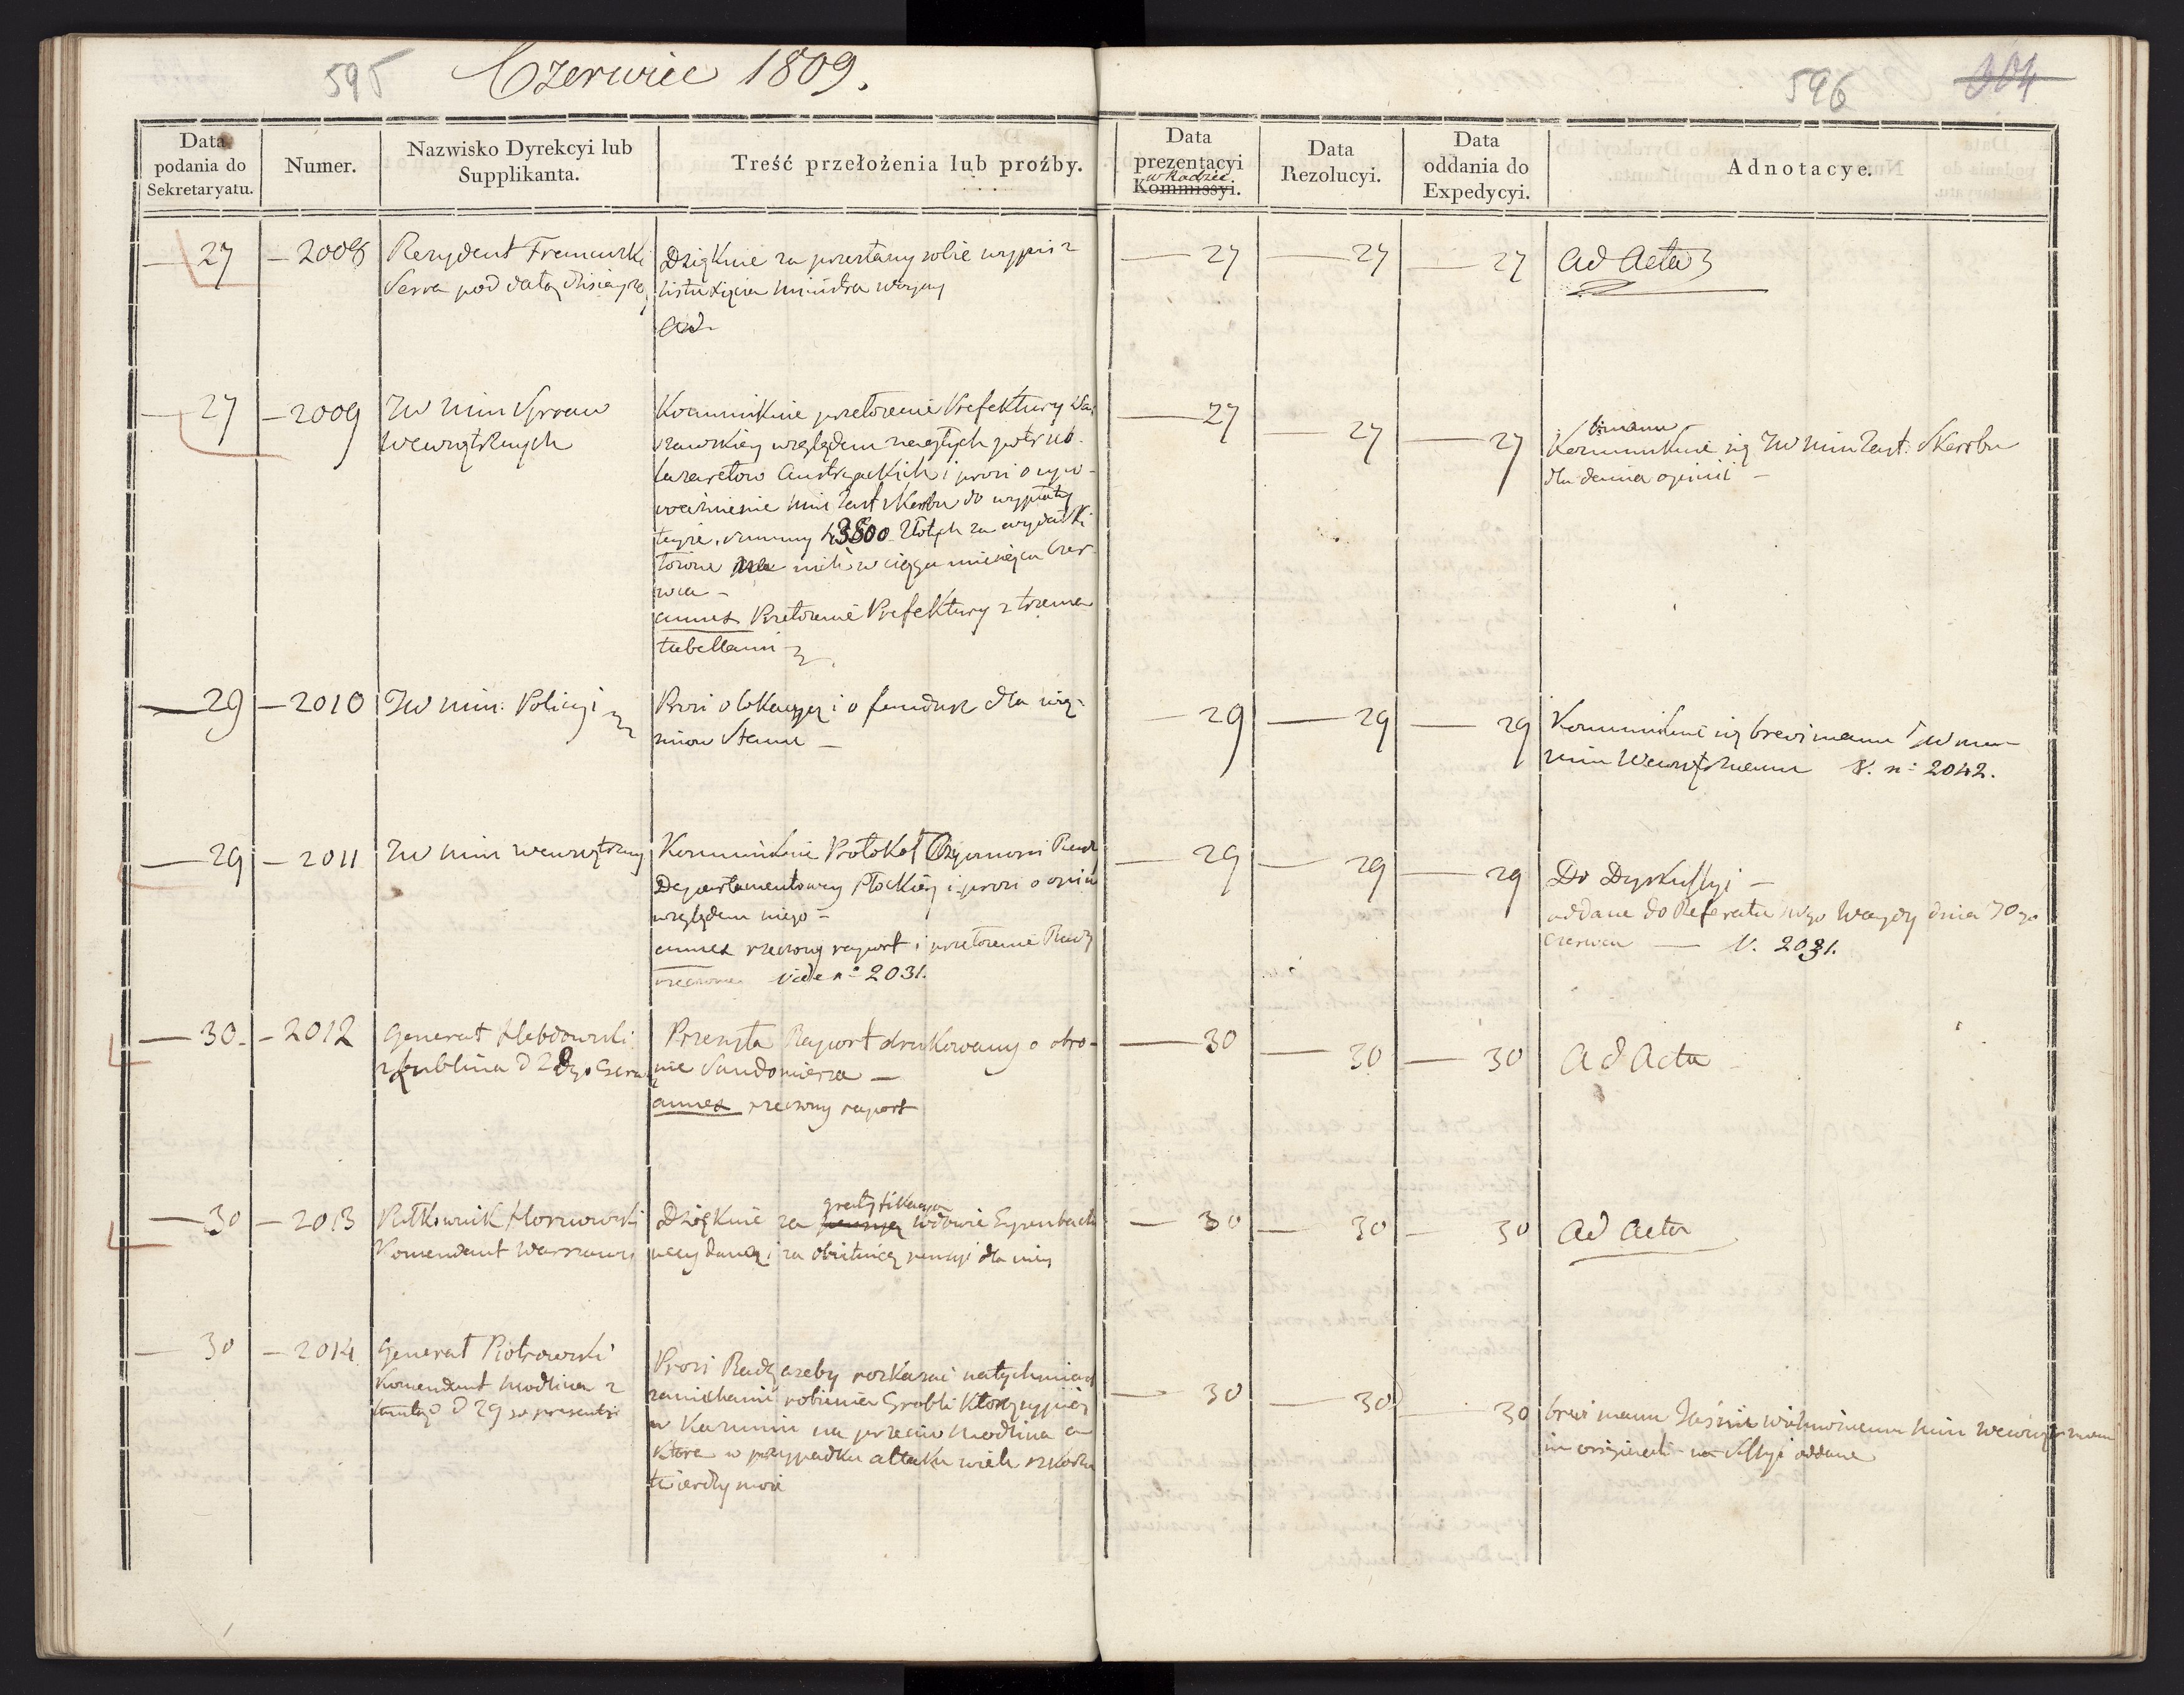 595 Czerwiec 1809.
596 304
Data podania do Sekretaryatu.
Numer.
Nazwisko Dyrekcyi lub Supplikanta.
Treść przełożenia lub proźby.
Data prezentacyi w Radzie Kommissyi.
Data Rezolucyi.
Data oddania do Expedycyi.
Adnotacye.
27 — 2008
Rezydent Francuski
Serra pod datą dzisieyszą
Dziękuie za przesłany sobie wypis z
listu Xięcia Ministra Woyny
Ad.
— 27 — 27 — 27
Ad Acta
27 — 2009
JW Min Spraw
Wewnętrznych
Kommunikuie przełożenie Prefektury War
szawskiey względem nagłych potrzeb
lazaretow Austryackich i prosi o upo-
ważnienie Min Zast Skarbu do wypłaty
teyże summy 43800 Złotych za wydatki
łożone na nich w ciągu miesiąca Czer-
wca —
annex Przełożenie Prefektury z trzema
tabellami
— 27 — 27 — 27
brimanu
Kommunikuie się JW Min Zast. Skarbu
dla dania opinii —
— 29 — 2010
JW Min. Policyi
Prosi o lokacyą i o fundusz dla wię-
zniow Stanu —
— 29 — 29 — 29
Kommunikuie się brevi manu JW
Wewnętrznemu V. n: 2042.
— 29 — 2011
JW Min Wewnętrzny
Kommunikuie Protokoł Czynnosci Rady
Departamentowey Płockiey i prosi o opinią
względem niego —
annex rzeczony raport i przełożenie Rady
rzeczone vide n: 2031.
— 29 — 29 — 29
Do Dyskussyi —
oddane do Referatu dnia 30go
Czerwca — V. 2031.
— 30 — 2012
Generał Hebdowski
z Lublina d 28go Czerw
Przesyła Raport drukowany o obro-
nie Sandomierza —
annex rzeczony raport
— 30 — 30 — 30
Ad Acta
— 30 — 2013
Pułkownik Hornowski
Komendant Warszawy
gratyfikacyą
Dziękuie za pensyą wdowie
daną i za obietnicę pensyi dla niey
— 30 — 30 — 30
Ad Acta
— 30 — 2014
Generał Piotrowski
Komendant Modlina z
d 29 go
Prosi Radę ażeby rozkazać natychmiast
zaniechanie robienia Grobli
w Kazuniu na przeciw Modlina a
która w przypadku attaku wiele szkodzi
twierdzy może
— 30 — 30 — 30
brevi manu Jaśnie Wielmożnemu Min Wewnętrznemu
in originali na Sessyi oddane